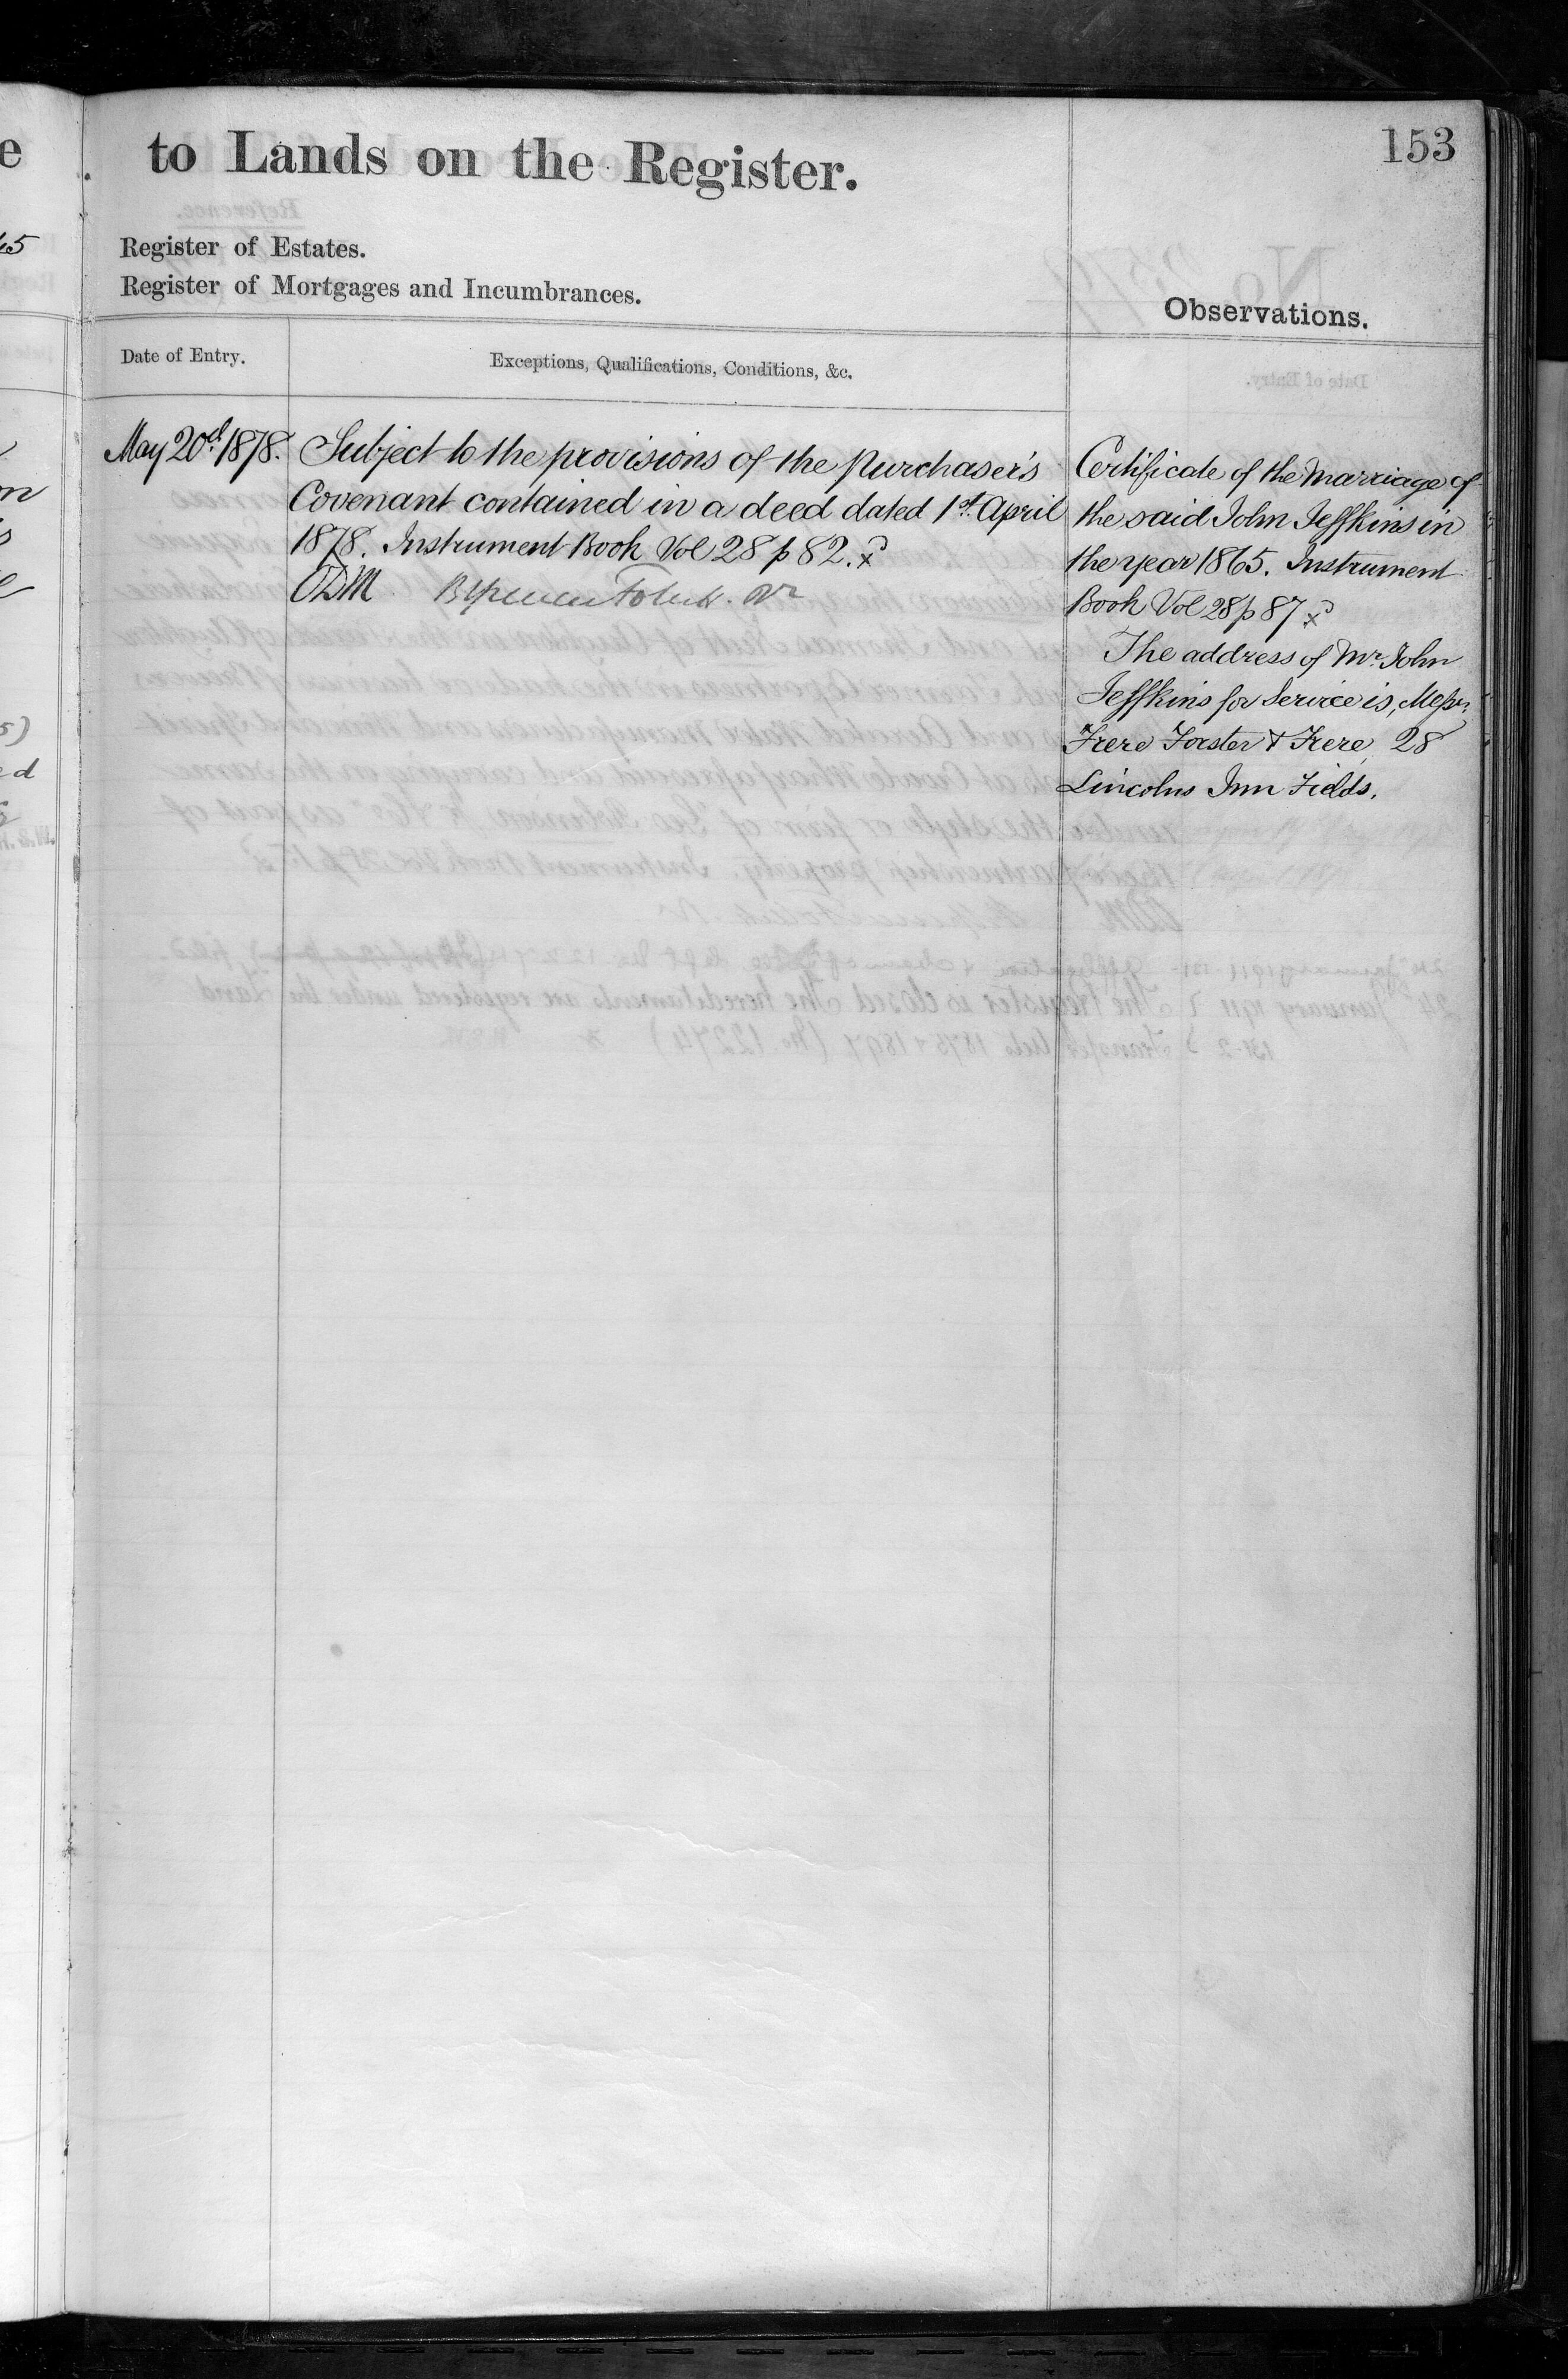 to Lands on the Register.
153
Register of Estates.
Register of Mortgages and Incumbrances.
Observations.
Date of Entry.
Exceptions, Qualifications, Conditions, &c.
May 20th 1878.
Subject to the provisions of the Purchaser's
Covenant contained in a deed dated 1st April
1878. Instrument Book Vol 28 p 82.
Certificate of the Marriage of
the said John Jeffkins in
the year 1865. Instrument
Book Vol 28 p 87
The address of Mr. John
Jeffkins for Service is, Messrs
Frere Forster & Frere, 28
Lincolns Inn Fields.